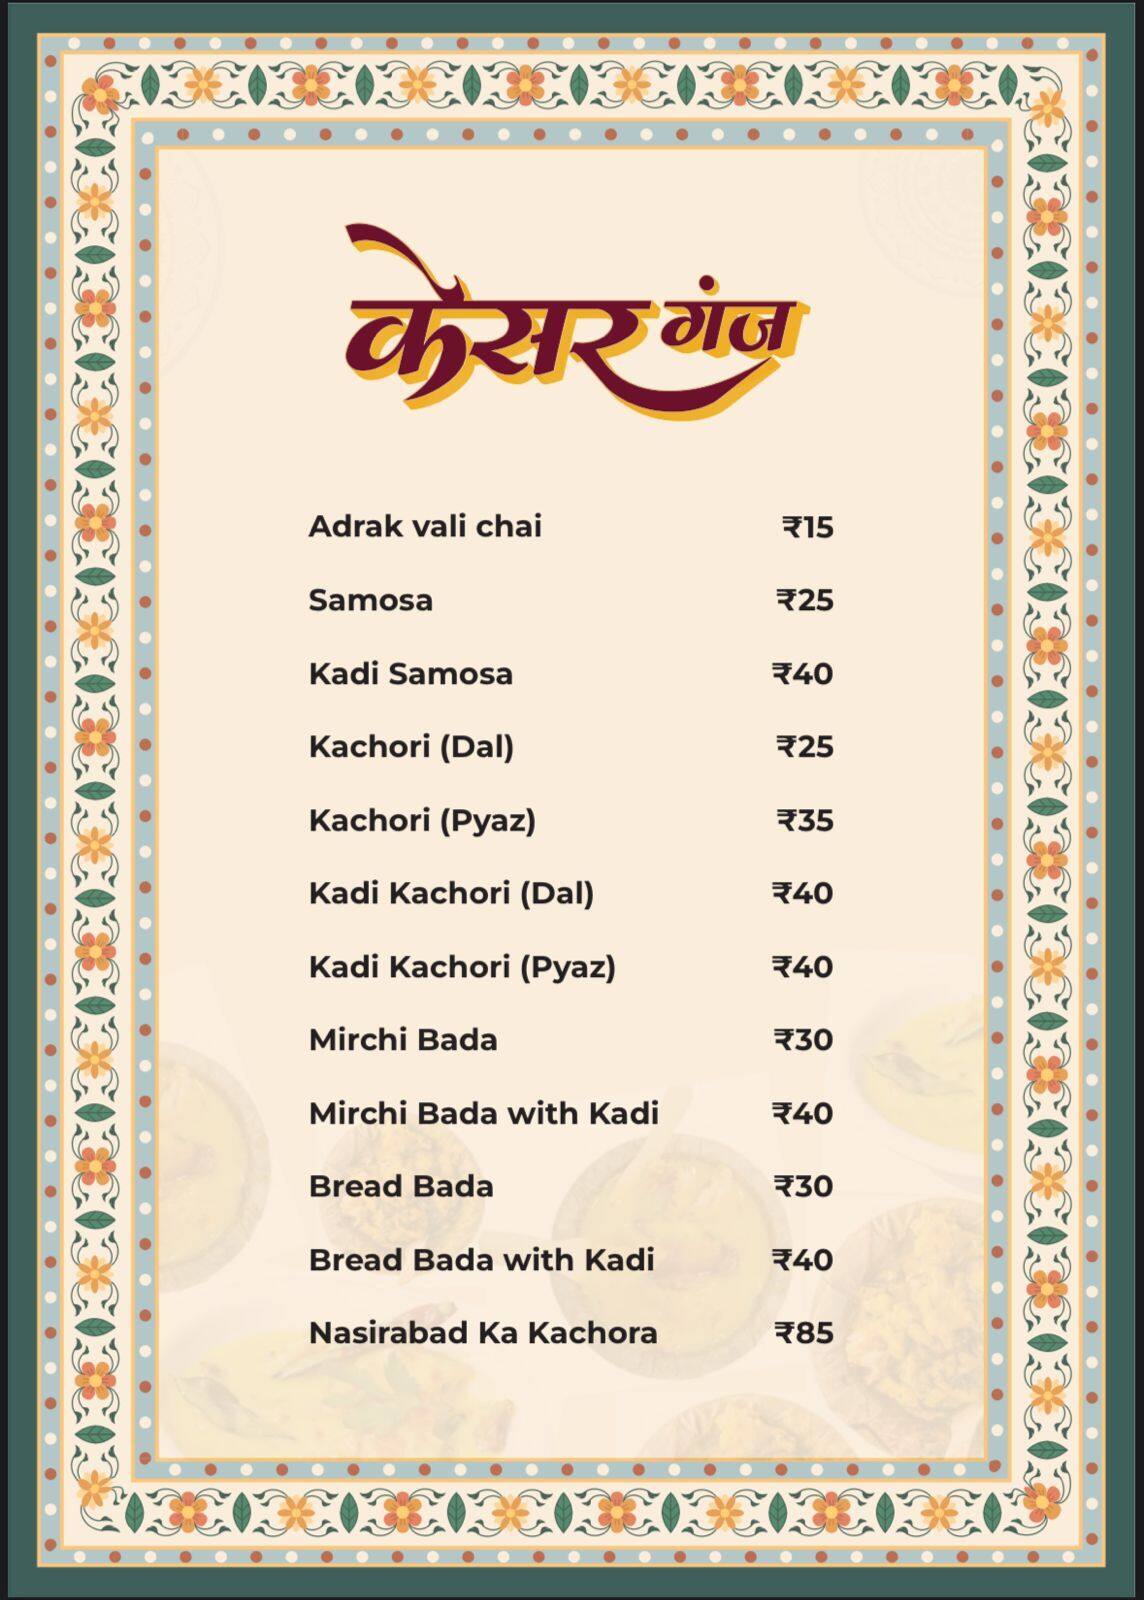 केसर गंज
Adrak vali chai ₹15
Samosa ₹25
Kadi Samosa ₹40
Kachori (Dal) ₹25
Kachori (Pyaz) ₹35
Kadi Kachori (Dal) ₹40
Kadi Kachori (Pyaz) ₹40
Mirchi Bada ₹30
Mirchi Bada with Kadi ₹40
Bread Bada ₹30
Bread Bada with Kadi ₹40
Nasirabad Ka Kachora ₹85